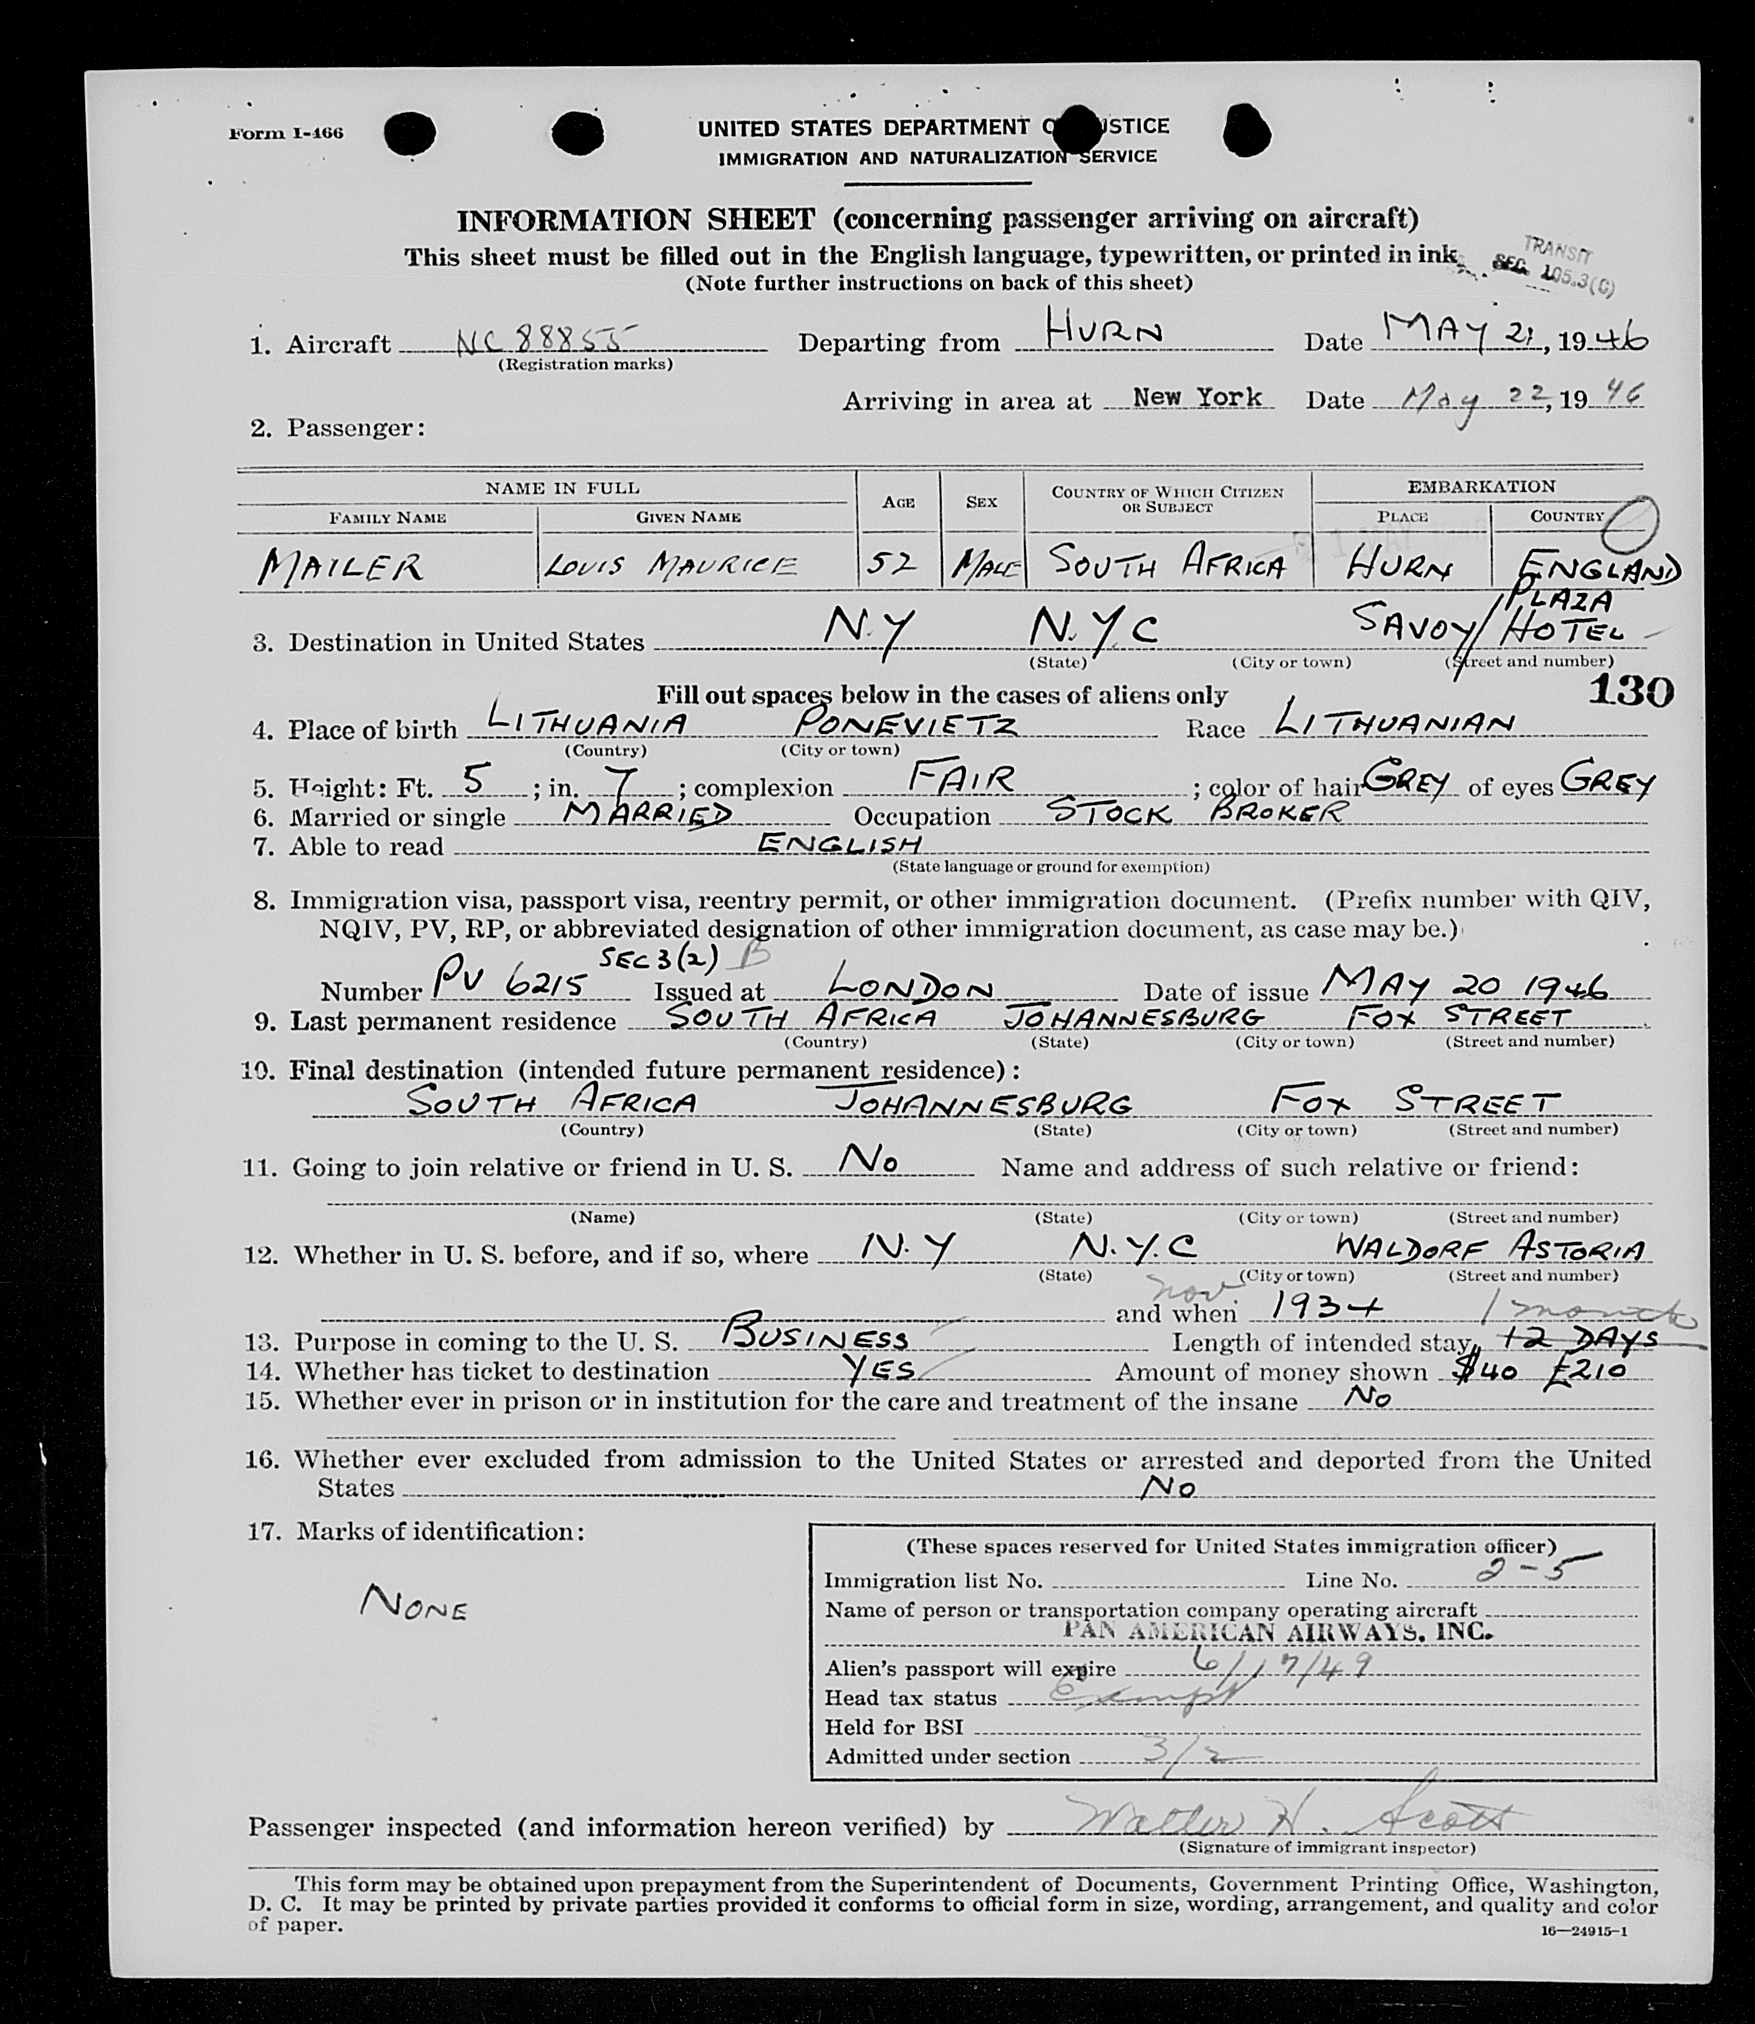 Form I-466
UNITED STATES DEPARTMENT O JSTICE
IMMIGRATION AND NATURALIZATION SERVICE
INFORMATION SHEET (concerning passenger arriving on aircraft)
This sheet must be filled out in the English language, typewritten, or printed in ink.
(Note further instructions on back of this sheet)
TRANSIT
SEC. 105.3(C)
1. Aircraft NC 88855 Departing from HURN Date MAY 21, 1946
(Registration marks)
Arriving in area at New York Date May 22, 1946
2. Passenger:
NAME IN FULL AGE SEX COUNTRY OF WHICH CITIZEN OR SUBJECT EMBARKATION
FAMILY NAME GIVEN NAME PLACE COUNTRY
MAILER LOUIS MAURICE 52 MALE SOUTH AFRICA HURN ENGLAND
3. Destination in United States N.Y N.Y.C SAVOY/PLAZA HOTEL
(State) (City or town) (Street and number)
130
Fill out spaces below in the cases of aliens only
4. Place of birth LITHUANIA PONEVIETZ Race LITHUANIAN
(Country) (City or town)
5. Height: Ft. 5; in. 7; complexion FAIR; color of hair GREY of eyes GREY
6. Married or single MARRIED Occupation STOCK BROKER
7. Able to read ENGLISH
(State language or ground for exemption)
8. Immigration visa, passport visa, reentry permit, or other immigration document. (Prefix number with QIV,
NQIV, PV, RP, or abbreviated designation of other immigration document, as case may be.)
SEC 3(2) B
Number PV 6215 Issued at LONDON Date of issue MAY 20 1946
9. Last permanent residence SOUTH AFRICA JOHANNESBURG FOX STREET
(Country) (State) (City or town) (Street and number)
10. Final destination (intended future permanent residence):
SOUTH AFRICA JOHANNESBURG FOX STREET
(Country) (State) (City or town) (Street and number)
11. Going to join relative or friend in U. S. NO Name and address of such relative or friend:
(Name) (State) (City or town) (Street and number)
12. Whether in U. S. before, and if so, where N.Y N.Y.C WALDORF ASTORIA
(State) (City or town) (Street and number)
and when Nov 1934 1 month
13. Purpose in coming to the U. S. BUSINESS Length of intended stay 12 DAYS
14. Whether has ticket to destination YES Amount of money shown $40 £210
15. Whether ever in prison or in institution for the care and treatment of the insane NO
16. Whether ever excluded from admission to the United States or arrested and deported from the United
States NO
17. Marks of identification:
NONE
(These spaces reserved for United States immigration officer)
Immigration list No. Line No. 2-5
Name of person or transportation company operating aircraft
PAN AMERICAN AIRWAYS, INC.
Alien's passport will expire 6/17/49
Head tax status Exempt
Held for BSI
Admitted under section 3/2
Passenger inspected (and information hereon verified) by Walter H. Scott
(Signature of immigrant inspector)
This form may be obtained upon prepayment from the Superintendent of Documents, Government Printing Office, Washington,
D. C. It may be printed by private parties provided it conforms to official form in size, wording, arrangement, and quality and color
of paper.
16—24915-1